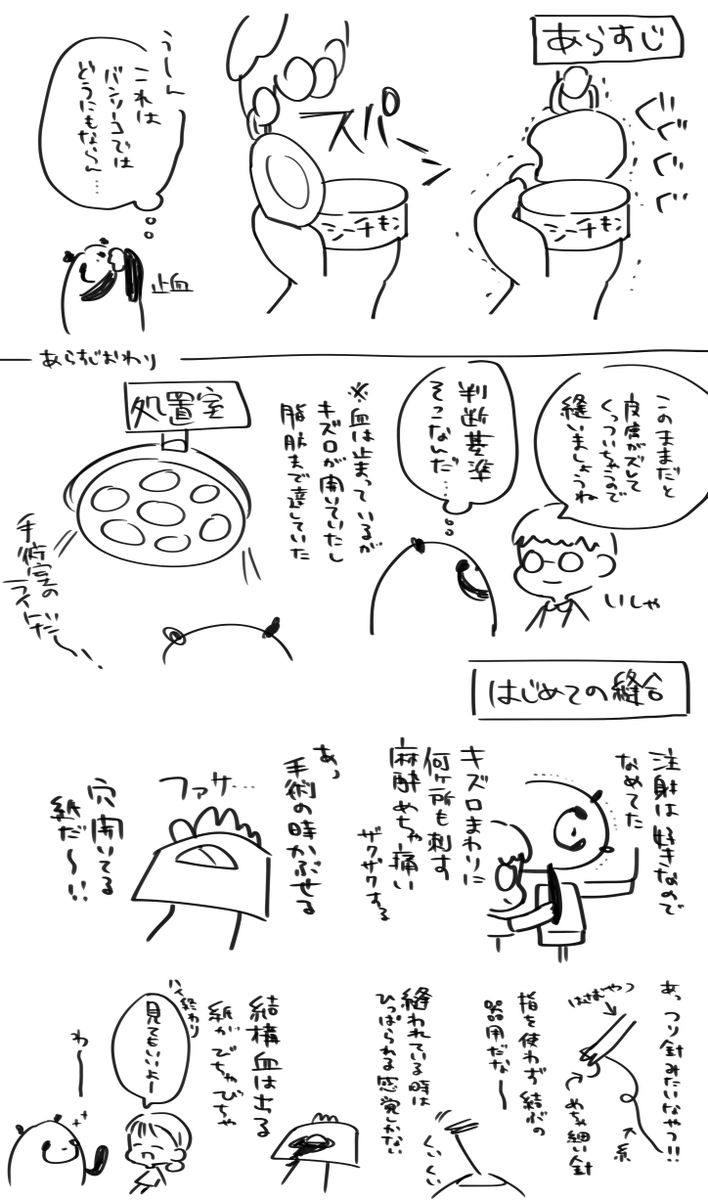 あらすじ
ぐぐぐぐ
シーチキン
スパーン
シーチキン
うーん
これは
バンソーコでは
どうにもならん…
止血
あらすじおわり
このままだと
皮膚がズレて
くっついちゃうので
縫いましょうね
いしゃ
判断基準
そこなんだ…
※血は止まっているが
キズ口が開いていたし
脂肪まで達していた
処置室
手術室の
ライトだ〜
はじめての縫合
注射は好きなので
なめてた
キズ口まわりに
何ヶ所も刺す
麻酔めちゃ痛い
ザクザクする
あっ
手術の時かぶせる
ファサ…
穴開いてる
紙だ〜!!
あっつり針みたいなやつ!!
はさむやつ
めちゃ細い針
糸
指を使わず結ぶの
器用だな〜
縫われている時は
ひっぱられる感覚しかない
くいくい
結構血は出る
紙がびちゃびちゃ
ハイ終わり
見てもいいよー
わ〜